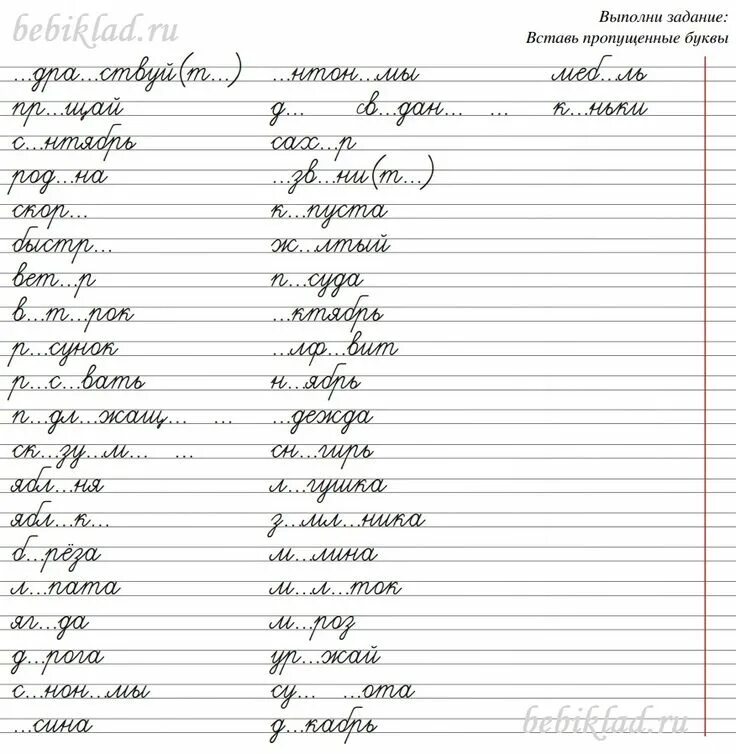 bebiklad.ru
Выполни задание:
Вставь пропущенные буквы
...дра...ствуй(т...) ...нтон...мы меб...ль
пр...щай д... св...дан... ... к...ньки
с...нтябрь сах...р
род...на ...зв...ни(т...)
скор... к...пуста
быстр... ж...лтый
вет...р п...суда
в...т...рок ...ктябрь
р...сунок ...лф...вит
р...с...вать н...ябрь
п...дл...жащ... ... ...дежда
ск...зу...м... ... сн...гирь
ябл...ня л...гушка
ябл...к... з...мл...ника
б...рёза м...лина
л...пата м...л...ток
яг...да м...роз
д...рога ур...жай
с...нон...мы су... ...ота
...сина д...кабрь
bebiklad.ru